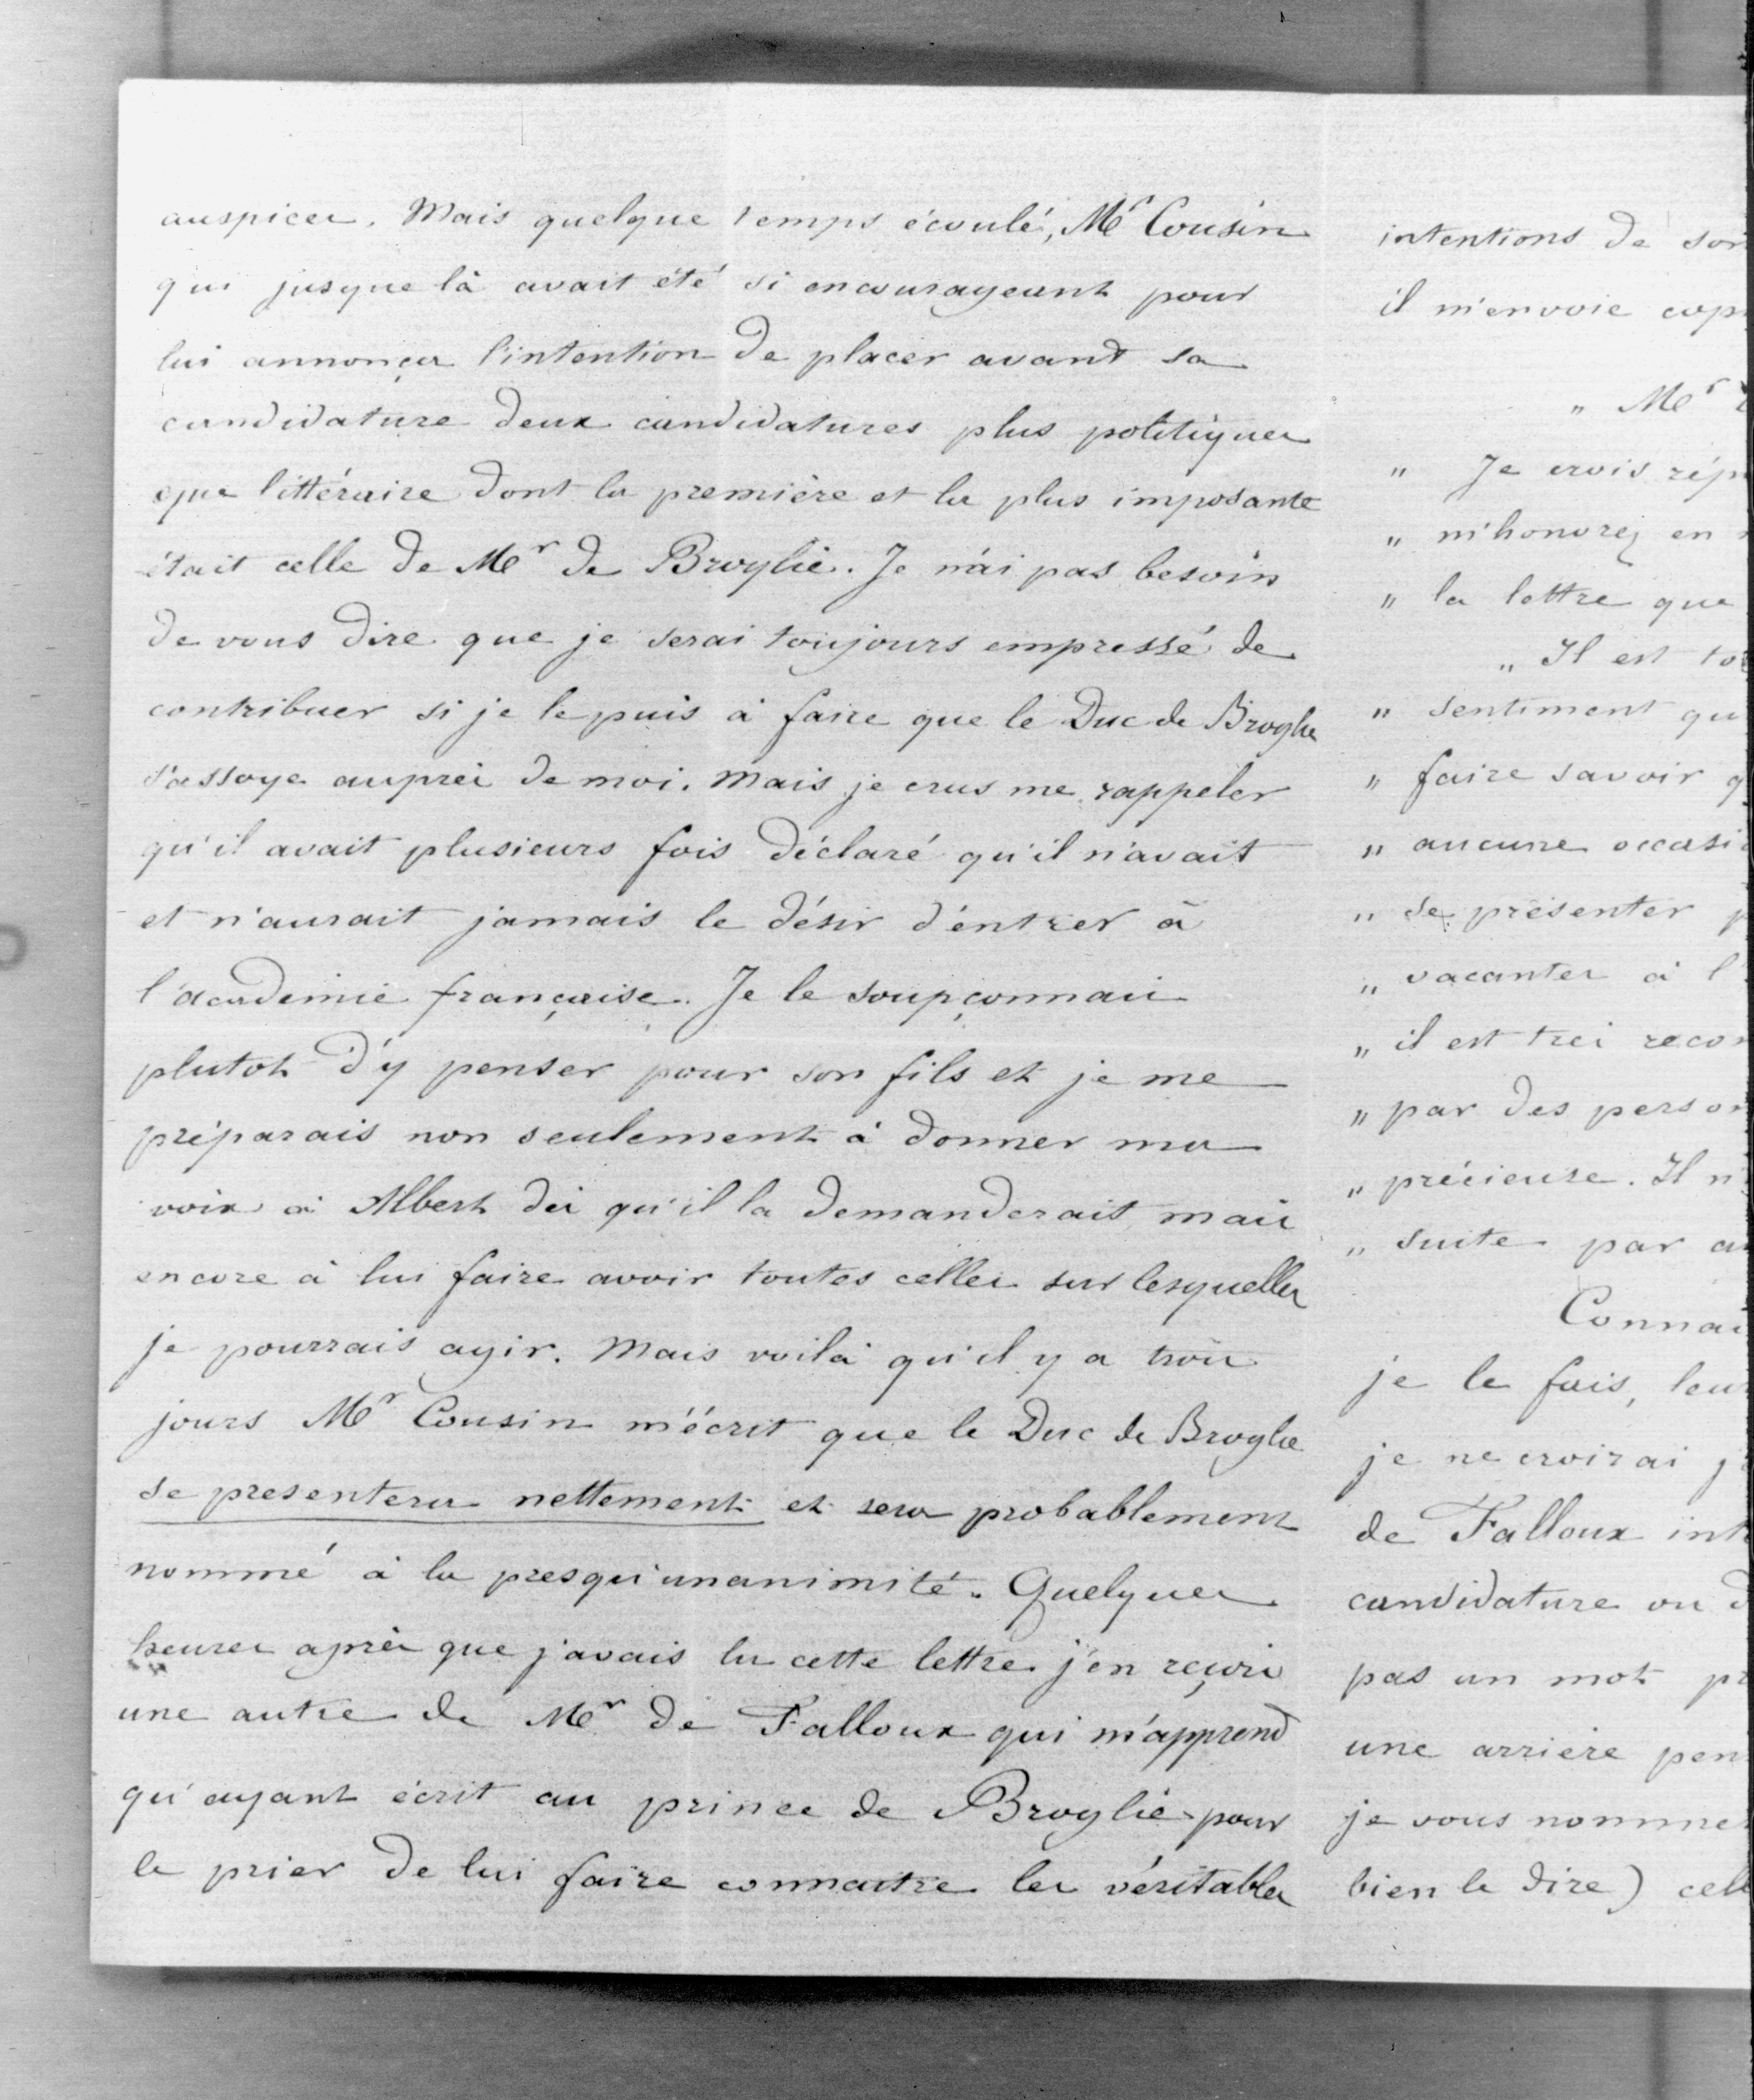 auspices. Mais quelque temps écoulé, Mr Cousin
qui jusque là avait été si encourageant pour
lui annonça l'intention de placer avant sa
candidature deux candidatures plus politiques
que littéraire dont la première et la plus imposante
était celle de Mr de Broglie. Je n'ai pas besoin
de vous dire que je serai toujours empressé de
contribuer si je le puis à faire que le Duc de Broglie
s'assoye auprès de moi. Mais je crus me rappeler
qu'il avait plusieurs fois déclaré qu'il n'avait
et n'aurait jamais le désir d'entrer à
l'académie française. Je le soupçonnais
plutot d'y penser pour son fils et je me
préparais non seulement à donner ma
voix à Albert dès qu'il la demanderait mais
encore à lui faire avoir toutes celles sur lesquelles
je pourrais agir. Mais voilà qu'il y a trois
jours Mr Cousin m'écrit que le Duc de Broglie
se presentera nettement et sera probablement
nommé à la presqu'unanimité. Quelques
heures après que j'avais lu cette lettre j'en reçois
une autre de Mr de Falloux qui m'apprend
qu'ayant écrit au prince de Broglie pour
le prier de lui faire connaitre les véritables
intentions de son
il m'envoie cop
" Mr
" Je crois rép
" m'honorez en
" la lettre que
" Il est to
" sentiment qu
" faire savoir q
" aucune occasi
" se présenter p
" vacantes à l
" il est très recon
" par des person
" précieuse. Il n
" suite par a
Connai
je le fais, leur
je ne croirai j
de Falloux int
candidature ou d
pas un mot pr
une arrière pen
je vous nomme
bien le dire) cel